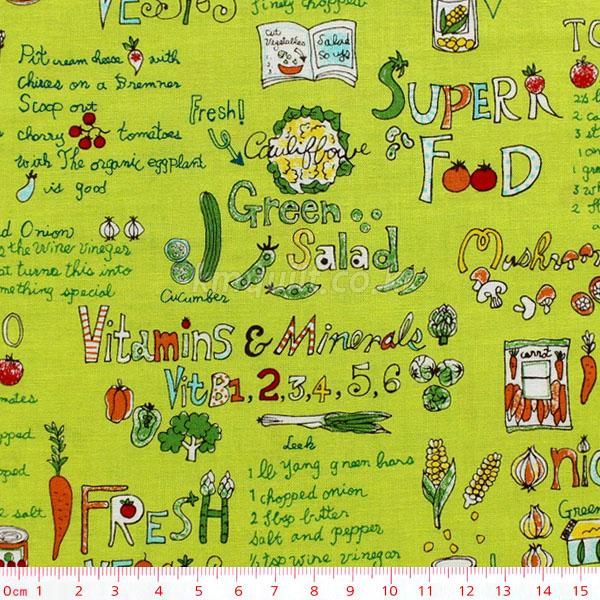 VEggIES
finely chopped
Put cream cheese with
chives on a Bremner
Scoop out
cherry tomatoes
with The organic eggplant
is good
Cut
Vegetables
Salad
Soups
Fresh!
Cauliflower
SUPER
FOOD
Green
Salad
Cucumber
d Onion
the Wine Vineger
at turns this into
mething special
Mushroom
Vitamins & Minerals
Vit B1,2,3,4,5,6
carrot
Leek
1 lb yang green bans
1 chopped onion
2 tbsp butter
salt and pepper
1/2 tsp wine vinegar
matoes
pped
pped
salt
FRESH
VEggIES
Onio
Green
0cm 1 2 3 4 5 6 7 8 9 10 11 12 13 14 15